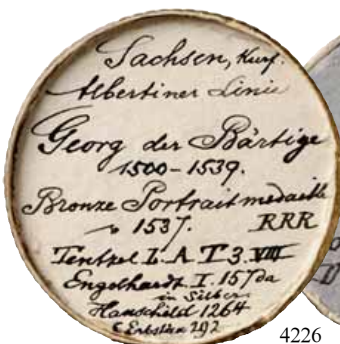 Sachsen, Kurf.
Albertiner Linie
Georg der Bärtige
1500-1539.
Bronze Portraitmedaille
v 1537. RRR
Tentzel L. A T 3. VIII
Engelhardt I. 157da
in Silber
Hauschild 1264
Erbstein 292
4226